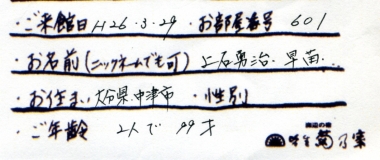 ・ご来館日 H26・3・29 ・お部屋番号 601
・お名前(ニックネームでも可) 上石勇治・早苗
・お住まい 大分県中津市 ・性別
・ご年齢 2人で 99才
味 菊乃家